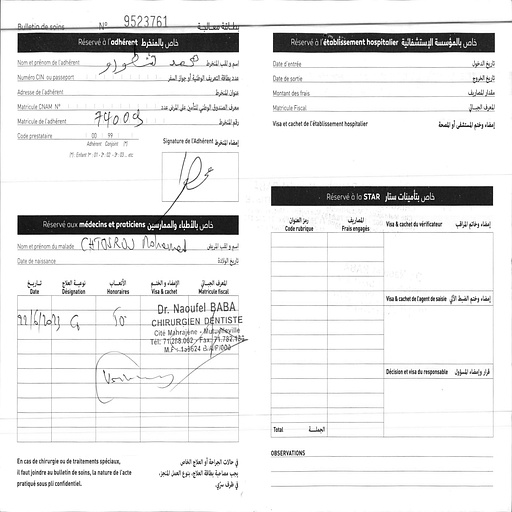 Bulletin de soins N° 9523761 بطاقة معالجة
Réservé à l'adhérent خاص بالمنخرط
Nom et prénom de l'adhérent محمد إسم و لقب المنخرط
Numéro CIN ou passeport عدد بطاقة التعريف الوطنية أو جواز السفر
Adresse de l'adhérent عنوان المنخرط
Matricule CNAM N° معرف الصندوق الوطني للتأمين على المرض عدد
Matricule de l'adhérent 74009 رقم المنخرط
Code prestataire 00 99
Adhérent Conjoint (*)
(*). Enfant 1er : 01 - 2e : 02 - 3e : 03 ... etc
Signature de l'Adhérent إمضاء المنخرط
Réservé aux médecins et praticiens خاص بالأطباء والممارسين
Nom et prénom du malade CHTOUROU Mohamed اسم و لقب المريض
Date de naissance تاريخ الولادة
تاريخ نوعية العلاج الأتعاب الإمضاء و الختم المعرف الجبائي
Date Désignation Honoraires Visa & cachet Matricule fiscal
22/6/2023 G 50
Dr. Naoufel BABA
CHIRURGIEN DENTISTE
Cité Mahrajène - Mutuelleville
Tél: 71.288.002 - Fax: 71.782.182
En cas de chirurgie ou de traitements spéciaux,
il faut joindre au bulletin de soins, la nature de l'acte
pratiqué sous pli confidentiel.
في حالات الجراحة أو العلاج الخاص
يجب مصاحبة بطاقة العلاج، بنوع العمل المنجز،
في ظرف سري.
Réservé à l'établissement hospitalier خاص بالمؤسسة الإستشفائية
Date d'entrée تاريخ الدخول
Date de sortie تاريخ الخروج
Montant des frais مقدار المصاريف
Matricule Fiscal المعرف الجبائي
Visa et cachet de l'établissement hospitalier إمضاء وختم المستشفى أو المصحة
Réservé à la STAR خاص بتأمينات ستار
رمز العنوان المصاريف
Code rubrique Frais engagés
Visa & cachet du vérificateur إمضاء وخاتم المراقب
Visa & cachet de l'agent de saisie إمضاء وختم الضبط الآلي
Décision et visa du responsable قرار وإمضاء المسؤول
Total الجملة
OBSERVATIONS